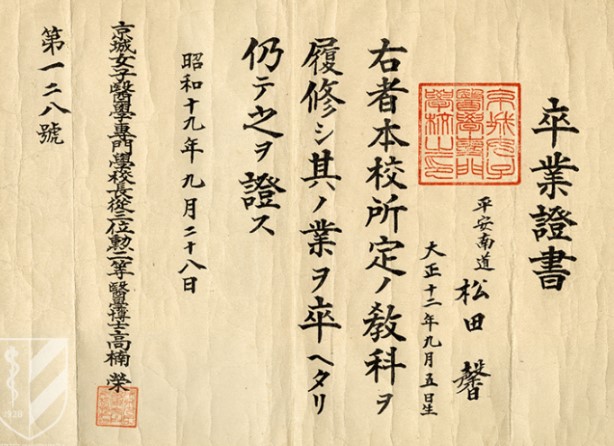 卒業證書
平安南道
松田馨
大正十二年九月五日生
右者本校所定ノ教科ヲ
履修シ其ノ業ヲ卒ヘタリ
仍テ之ヲ證ス
昭和十九年九月二十八日
京城女子醫學專門學校長從三位勲二等醫學博士高楠榮
第一二八號
1920